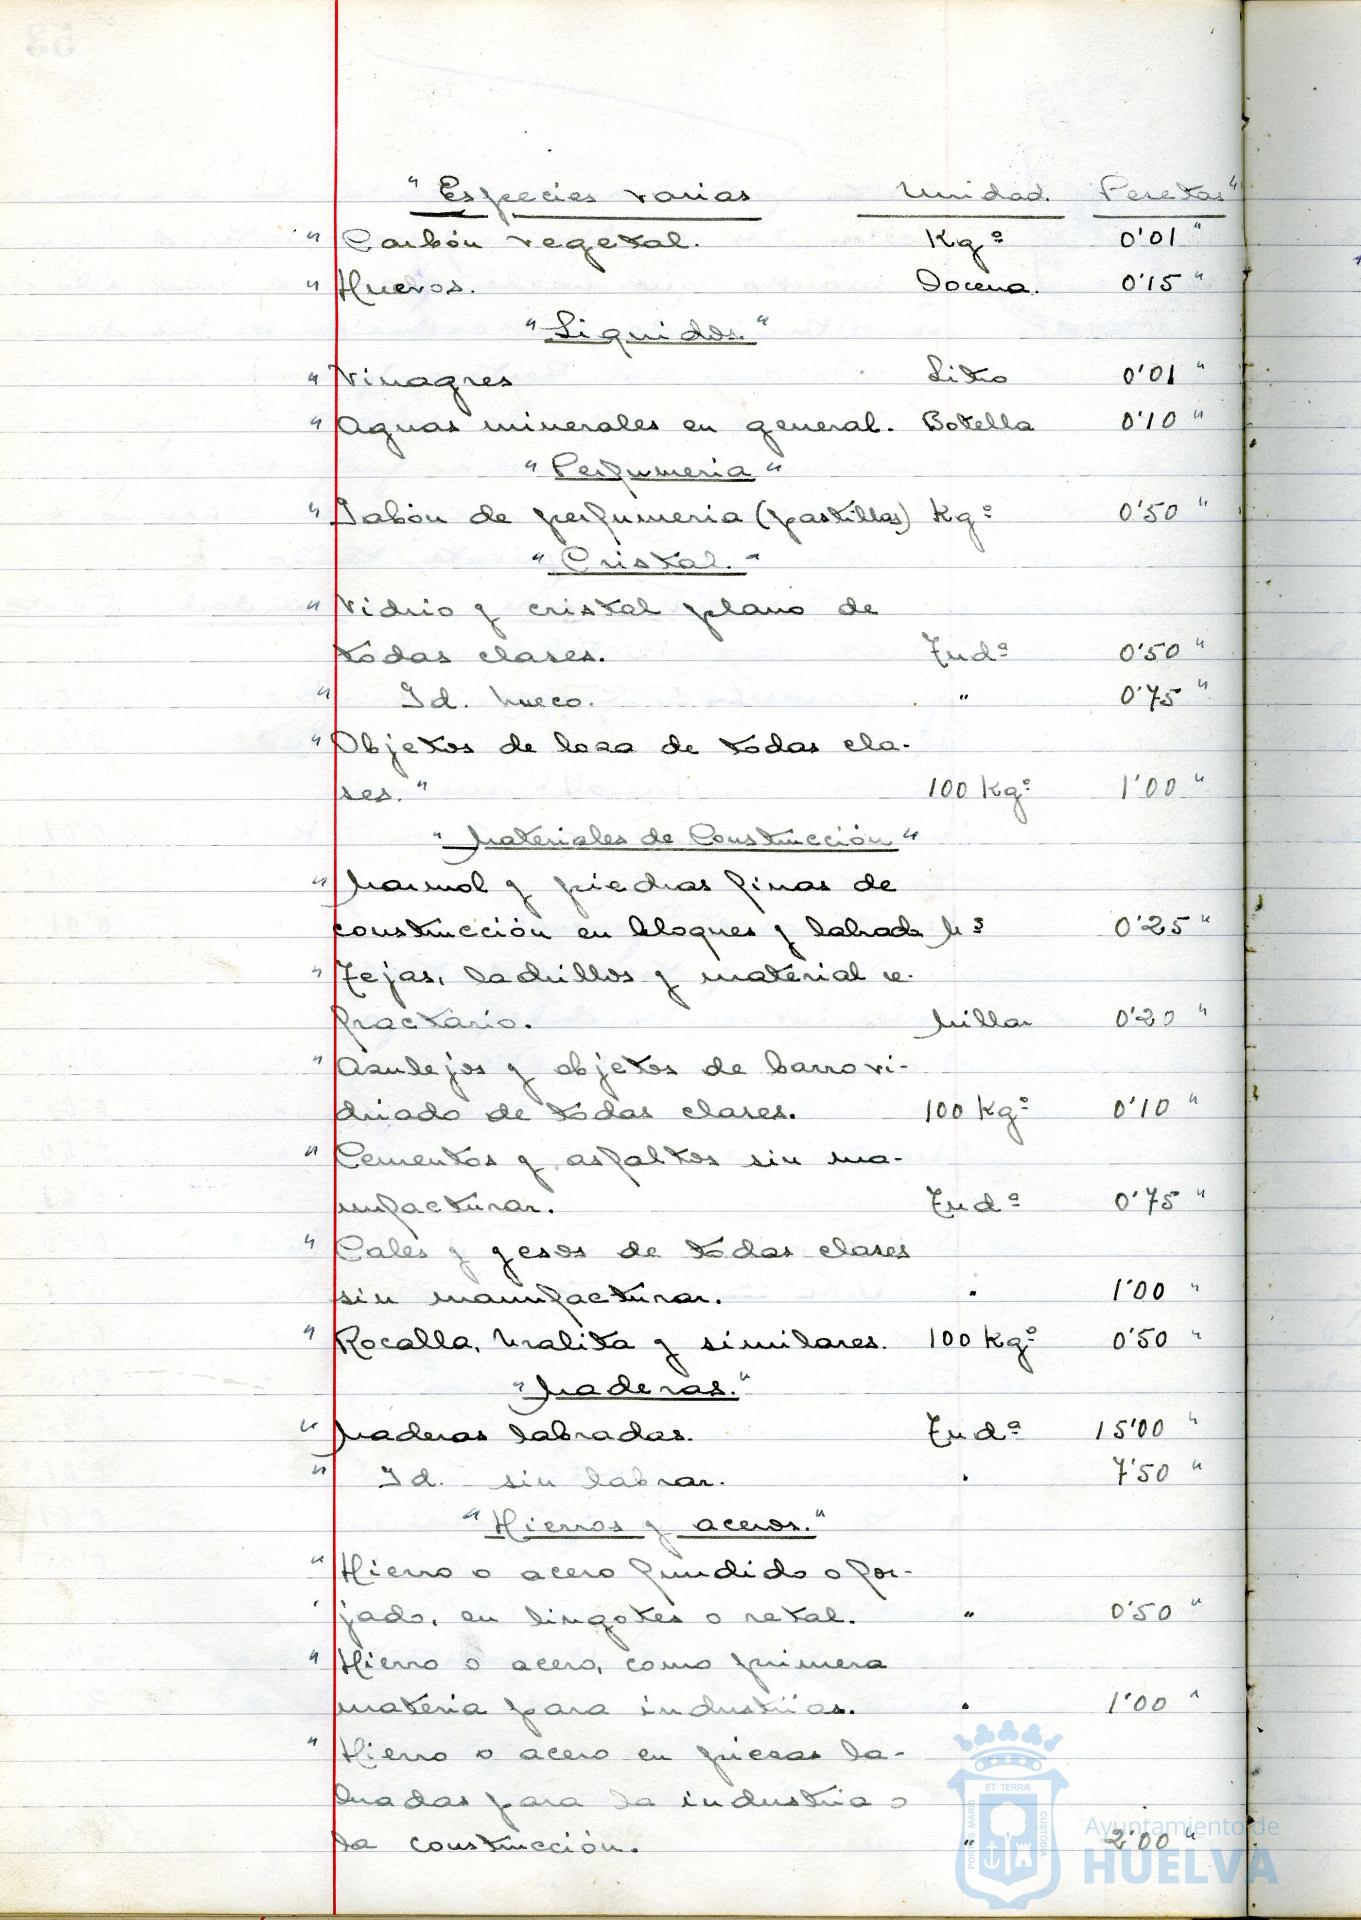 " Especies varias Unidad. Pesetas"
" Carbón vegetal. Kgº 0'01 "
" Huevos. Docena. 0'15 "
"Liquidos."
" Vinagres Litro 0'01 "
" Aguas minerales en general. Botella 0'10 "
"Perfumeria"
" Jabón de perfumeria (pastillas) Kgº 0'50 "
"Cristal."
" Vidrio y cristal plano de
todas clases. Tndª 0'50 "
" Id. hueco. " 0'75 "
" Objetos de loza de todas cla-
ses." 100 Kgº 1'00 "
"Materiales de Construcción"
" Marmol y piedras finas de
construcción en bloques y labrada M³ 0'25 "
" Tejas, ladrillos y material re-
fractario. Millar 0'20 "
" Azulejos y objetos de barro vi-
driado de todas clases. 100 Kgº 0'10 "
" Cementos y asfaltos sin ma-
nufacturar. Tndª 0'75 "
" Cales y yesos de todas clases
sin manufacturar. " 1'00 "
" Rocalla, Uralita y similares. 100 Kgº 0'50 "
"Maderas."
" Maderas labradas. Tndª 15'00 "
" Id. sin labrar. " 7'50 "
"Hierros y aceros."
" Hierro o acero fundido o for-
jado, en lingotes o retal. " 0'50 "
" Hierro o acero, como primera
materia para industrias. " 1'00 "
" Hierro o acero en piezas la-
bradas para la industria o
la construcción. " 2'00 "
ET TERRÆ
PORTUS MARIS
CUSTODIA
Ayuntamiento de
HUELVA